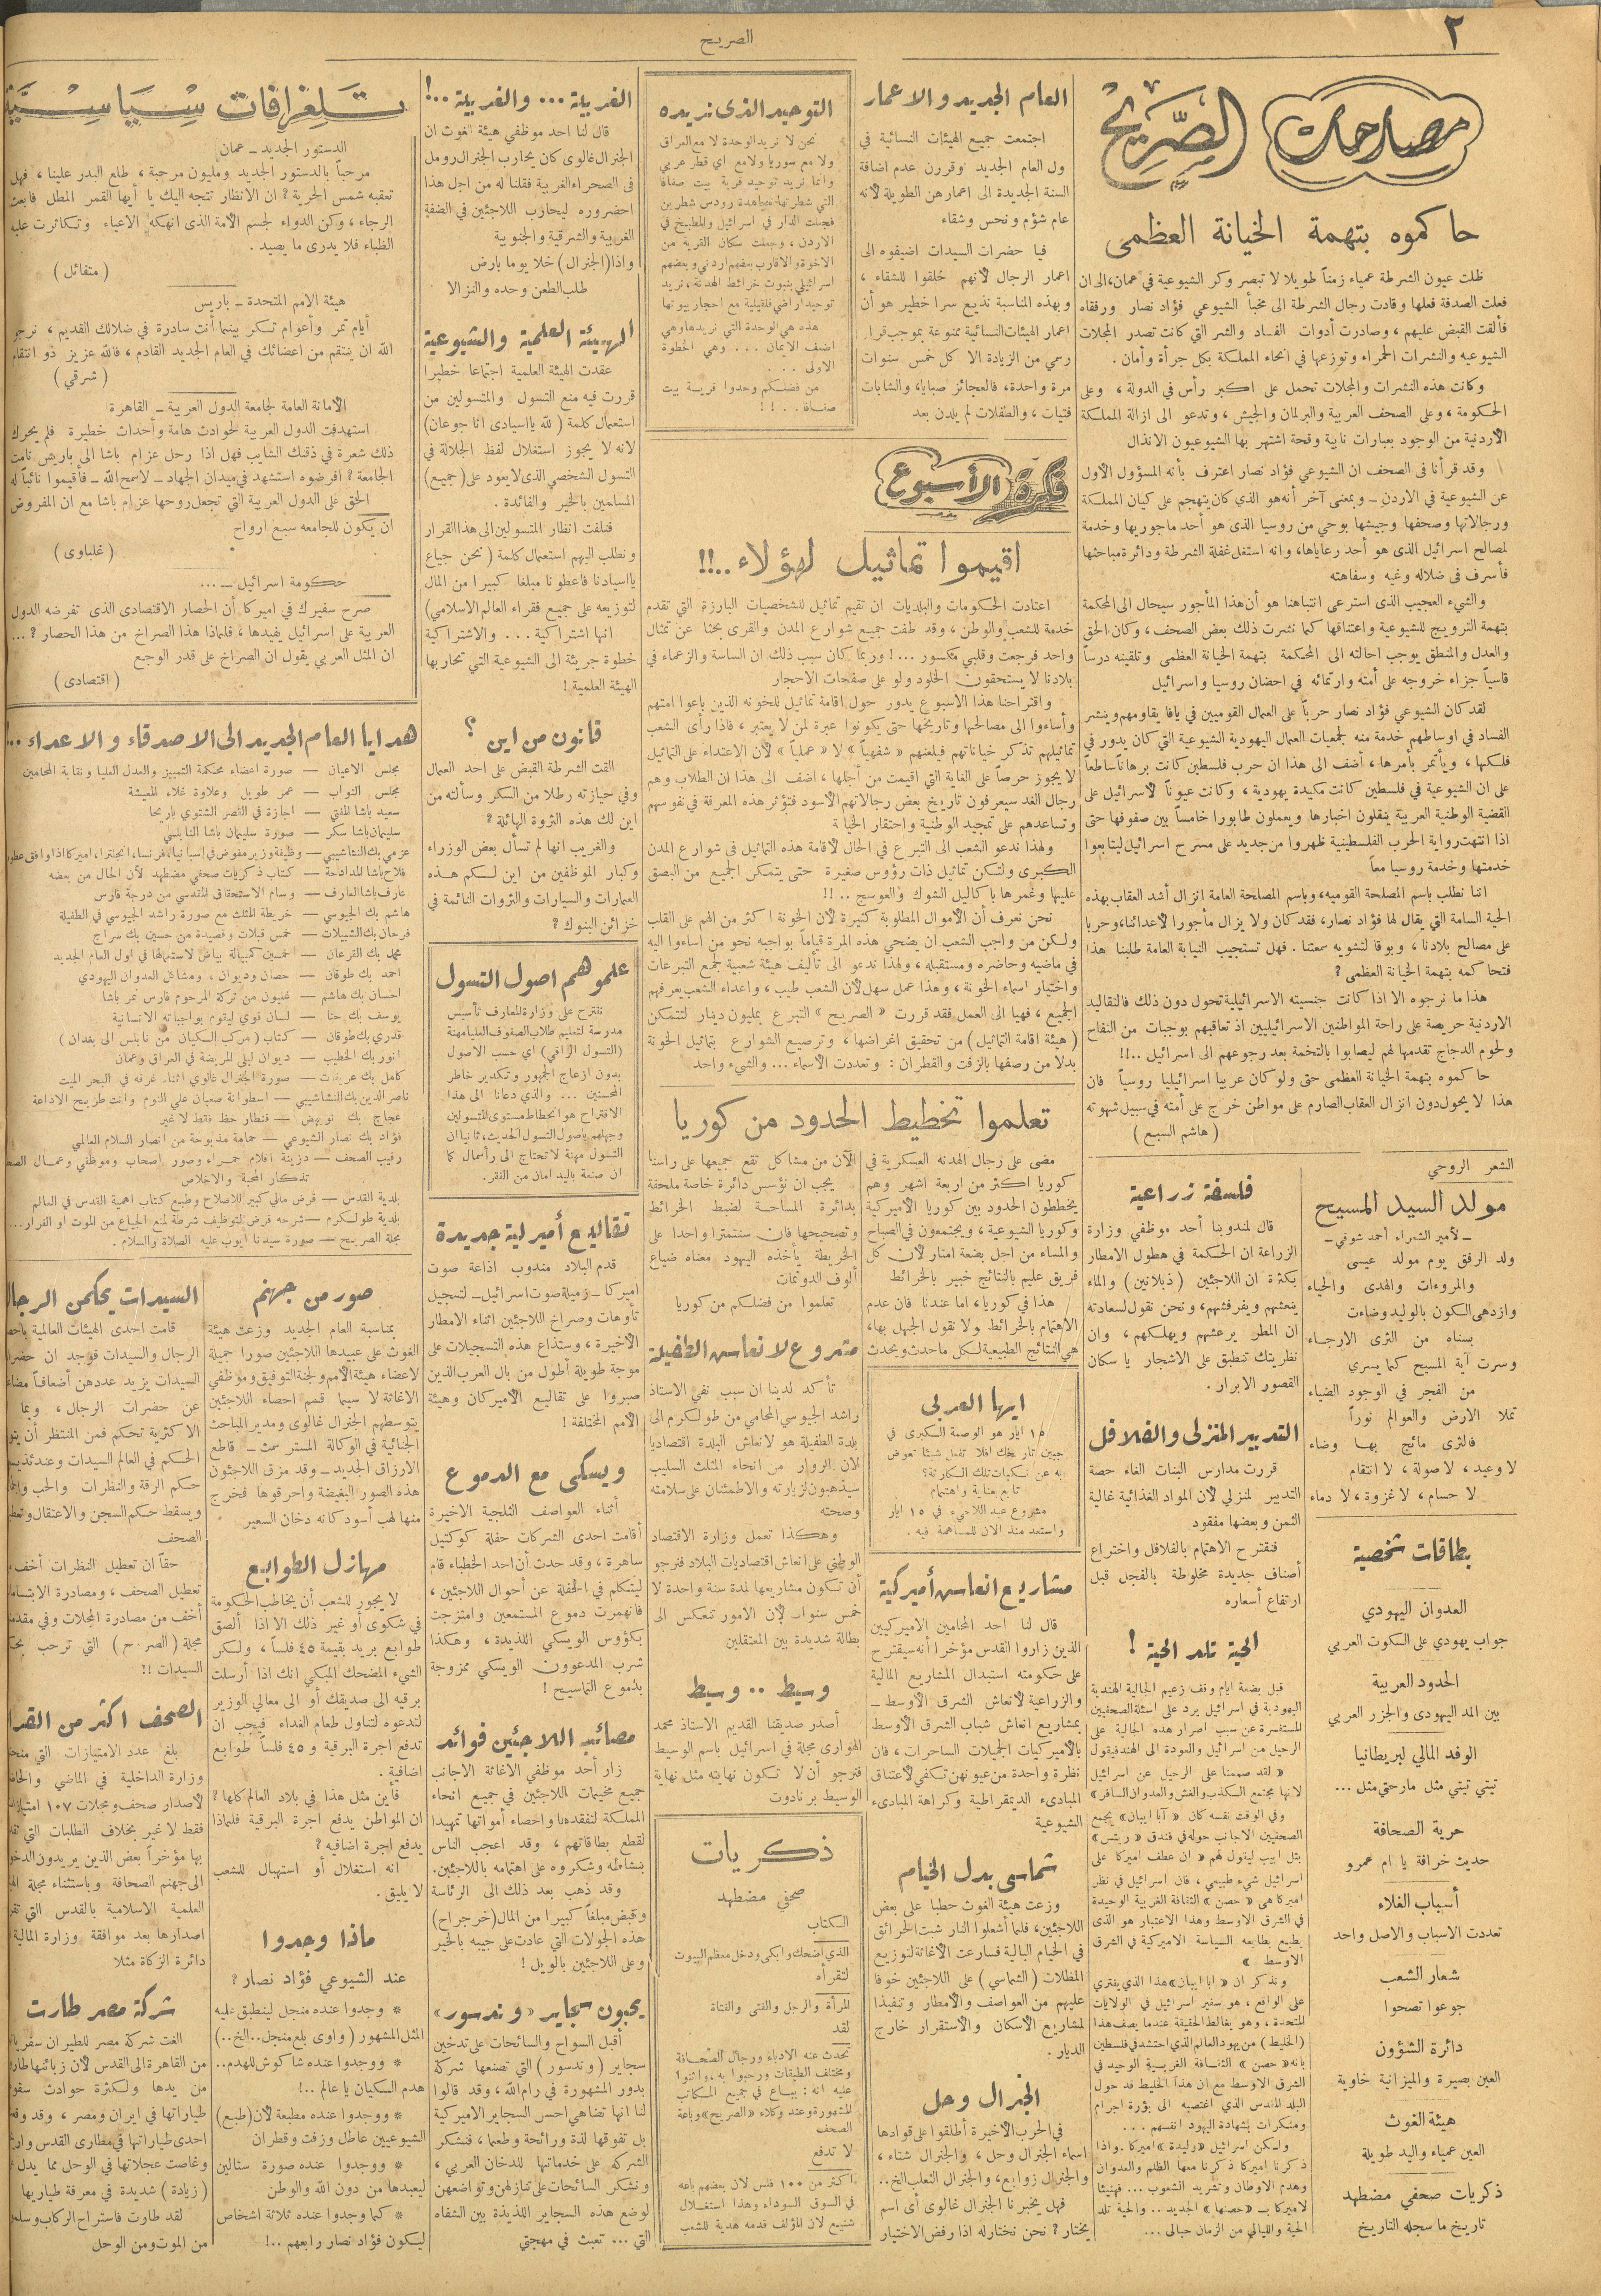 ٢
الصريح
مصارحات الصريح
حاكموه بتهمة الخيانة العظمى
ظلت عيون الشرطة عمياء زمناً طويلا لا تبصر وكر الشيوعية في عمان، الى ان
فعلت الصدفة فعلها وقادت رجال الشرطة الى مخبأ الشيوعي فؤاد نصار ورفقاه
فألقت القبض عليهم، وصادرت أدوات الفساد والشر التي كانت تصدر المجلات
الشيوعيه والنشرات الحمراء وتوزعها في انحاء المملكة بكل جرأة وأمان .
وكانت هذه النشرات والمجلات تحمل على اكبر رأس في الدولة، وعلى
الحكومة، وعلى الصحف العربية والبرلمان والجيش، وتدعو الى ازالة المملكة
الأردنية من الوجود بعبارات نابية وقحة اشتهر بها الشيوعيون الانذال
وقد قرأنا فى الصحف ان الشيوعي فؤاد نصار اعترف بأنه المسؤول الأول
عن الشيوعية في الاردن ـ وبمعنى آخر أنه هو الذي كان يتهجم على كيان المملكة
ورجالاتها وصحفها وجيشها بوحي من روسيا الذى هو أحد ماجوريها وخدمة
لمصالح اسرائيل الذى هو أحد رعاياها، وانه استغل غفلة الشرطة ودائرة مباحثها
فأسرف فى ضلاله وغيه وسفاهته
والشيء العجيب الذى استرعى انتباهنا هو أن هذا المأجور سيحال الى المحكمة
بتهمة الترويج للشيوعية واعتناقها كما نشرت ذلك بعض الصحف، وكان الحق
والعدل والمنطق يوجب احالته الى المحكمة بتهمة الخيانة العظمى وتلقينه درساً
قاسياً جزاء خروجه على أمته وارتمائه في احضان روسيا واسرائيل
لقد كان الشيوعي فؤاد نصار حرباً على العمال القوميين في يافا يقاومهم وينشر
الفساد في اوساطهم خدمة منه لجمعيات العمال اليهودية الشيوعية التي كان يدور في
فلكها، ويأتمر بأمرها، أضف الى هذا ان حرب فلسطين كانت برهاناً ساطعاً
على ان الشيوعية في فلسطين كانت مكيدة يهودية، وكانت عيوناً لاسرائيل على
القضية الوطنية العربية ينقلون اخبارها ويعملون طابورا خامساً بين صفوفها حتى
اذا انتهت رواية الحرب الفلسطينية ظهروا من جديد على مسرح اسرائيل ليتابعوا
خدمتها وخدمة روسيا معاً
اننا نطلب باسم المصلحة القوميه، وباسم المصلحة العامة انزال أشد العقاب بهذه
الحية السامة التي يقال لها فؤاد نصار، فقد كان ولا يزال مأجورا لأعدائنا، وحربا
على مصالح بلادنا، وبوقا لتشويه سمعتنا. فهل تستجيب النيابة العامة طلبنا هذا
فتحاكمه بتهمة الخيانة العظمى ؟
هذا ما نرجوه الا اذا كانت جنسيته الاسرائيلية تحول دون ذلك فالتقاليد
الاردنية حريصة على راحة المواطنين الاسرائيليين اذ تعاقبهم بوجبات من التفاح
ولحوم الدجاج تقدمها لهم ليصابوا بالتخمة بعد رجوعهم الى اسرائيل ..!!
حاكموه بتهمة الخيانة العظمى حتى ولو كان عربيا اسرائيليا روسياً فان
هذا لا يحول دون انزال العقاب الصارم على مواطن خرج على أمته في سبيل شهوته
( هاشم السبع )
الشعر الروحي
مولد السيد المسيح
ـ لأمير الشعراء أحمد شوقي ـ
ولد الرفق يوم مولد عيسى
والمروءات والهدى والحياء
وازدهى الكون بالوليد وضاءت
بسناه من الثرى الارجاء
وسرت آية المسيح كما يسري
من الفجر في الوجود الضياء
تملأ الارض والعوالم نوراً
فالثرى مائج بها وضاء
لا وعيد، لا صولة، لا انتقام
لا حسام، لا غزوة، لا دماء
بطاقات شخصية
العدوان اليهودي
جواب يهودي على السكوت العربي
الحدود العربية
بين المد اليهودى والجزر العربي
الوفد المالي لبريطانيا
تيتي تيتي مثل مارحتي مثل ...
حرية الصحافة
حديث خرافة يا ام عمرو
أسباب الغلاء
تعددت الاسباب والاصل واحد
شعار الشعب
جوعوا تصحوا
دائرة الشؤون
العين بصيرة والميزانية خاوية
هيئة الغوث
العين عمياء واليد طويلة
ذكريات صحفي مضطهد
تاريخ ما سجله التاريخ
فلسفة زراعية
قال لمندوبنا أحد موظفي وزارة
الزراعة ان الحكمة في هطول الامطار
بكثرة ان اللاجئين (ذبلانين) والماء
ينعشهم ويفرفشهم، ونحن نقول لسعادته
ان المطر يرعشهم ويهلكهم، وان
نظريتك تنطبق على الاشجار يا سكان
القصور الابرار.
التدبير المنزلى والفلافل
قررت مدارس البنات الغاء حصة
التدبير لمنزلي لأن المواد الغذائية غالية
الثمن وبعضها مفقود
فنقترح الاهتمام بالفلافل واختراع
أصناف جديدة مخلوطة بالفجل قبل
ارتفاع أسعاره
الحية تلد الحية !
قبل بضعة ايام وقف زعيم الجالية الهندية
اليهودية في اسرائيل يرد على اسئلة الصحفيين
المستفسرة عن سبب اصرار هذه الجالية على
الرحيل من اسرائيل والعودة الى الهند فيقول
« لقد صممنا على الرحيل عن اسرائيل
لانها مجتمع الكذب والغش والعدوان السافر»
وفي الوقت نفسه كان «آبا ايبان» يجمع
الصحفيين الاجانب حوله في فندق «ريتس»
بتل ابيب ليقول لهم « ان عطف اميركا على
اسرائيل شيء طبيعي، فان اسرائيل في نظر
اميركا هى «حصن» الثقافة الغربية الوحيدة
في الشرق الاوسط وهذا الاعتبار هو الذى
يطبع بطابعه السياسة الاميركية في الشرق
الاوسط »
ونذكر ان «ابا ايبان» هذا الذي يفتري
على الواقع، هو سفير اسرائيل في الولايات
المتحدة، وهو يغالط الحقيقة عندما يصف هذا
(الخليط) من يهود العالم الذي احتشد في فلسطين
بانه «حصن» الثقافة الغربية الوحيد في
الشرق الاوسط مع ان هذا الخليط قد حول
البلد المقدس الذي اغتصبه الى بؤرة اجرام
ومنكرات بشهادة اليهود انفسهم ...
ولكن اسرائيل «وليدة» اميركا . واذا
ذكرنا اميركا ذكرنا معها الظلم والعدوان
وهدم الاوطان وتشريد الشعوب ... فهنيئا
لاميركا بـ «حصنها» الجديد .. والحية تلد
الحية والليالي من الزمان حبالى ...
العام الجديد والاعمار
اجتمعت جميع الهيئات النسائية في
ول العام الجديد وقررن عدم اضافة
السنة الجديدة الى اعمارهن الطويلة لأنه
عام شؤم ونحس وشقاء
فيا حضرات السيدات اضيفوه الى
اعمار الرجال لأنهم خلقوا للشقاء،
وبهذه المناسبة نذيع سرا خطير هو أن
اعمار الهيئات النسائية ممنوعة بموجب قرار
رسمي من الزيادة الا كل خمس سنوات
مرة واحدة، فالعجائز صبايا، والشابات
فتيات، والطفلات لم يلدن بعد
التوحيد الذى نريده
نحن لا نريد الوحدة لا مع العراق
ولا مع سوريا ولا مع اي قطر عربي
وانما نريد توحيد قرية بيت صفافا
التي شطرتها معاهدة رودس شطرين
فجعلت الدار في اسرائيل والمطبخ في
الاردن، وجعلت سكان القرية من
الاخوة والاقارب بعضهم اردني وبعضهم
اسرائيلي بثبوت خرائط الهدنة، نريد
توحيد اراضي قلقيلية مع احجار بيوتها
هذه هي الوحدة التي نريدها وهي
اضعف الايمان ... وهي الخطوة
الاولى ...
من فضلكم وحدوا قرية بيت
صفافا .. !!
فكرة الأسبوع
اقيموا تماثيل لهؤلاء ..!!
اعتادت الحكومات والبلديات ان تقيم تماثيل للشخصيات البارزة التي تقدم
خدمة للشعب والوطن، وقد طفت جميع شوارع المدن والقرى بحثا عن تمثال
واحد فرجعت وقلبي مكسور ...! وربما كان سبب ذلك ان الساسة والزعماء في
بلادنا لا يستحقون الخلود ولو على صفحات الاحجار
واقتراحنا هذا الاسبوع يدور حول اقامة تماثيل للخونه الذين باعوا امتهم
وأساءوا الى مصالحها وتاريخها حتى يكونوا عبرة لمن لا يعتبر، فاذا رأى الشعب
تماثيلهم تذكر خياناتهم فيلعنهم «شفهياً» لا «عملياً» لأن الاعتداء على التماثيل
لا يجوز حرصاً على الغاية التي اقيمت من أجلها، اضف الى هذا ان الطلاب وهم
رجال الغد سيعرفون تاريخ بعض رجالاتهم الأسود فتؤثر هذه المعرفة في نفوسهم
وتساعدهم على تمجيد الوطنية واحتقار الخيانة
ولهذا ندعو الشعب الى التبرع في الحال لاقامة هذه التماثيل فى شوارع المدن
الكبرى ولتكن تماثيل ذات رؤوس صغيرة حتى يتمكن الجميع من البصق
عليها وغمرها باكاليل الشوك والعوسج .. !!
نحن نعرف أن الأموال المطلوبة كثيرة لأن الخونة اكثر من الهم على القلب
ولكن من واجب الشعب ان يضحي هذه المرة قياماً بواجبه نحو من اساءوا اليه
في ماضيه وحاضره ومستقبله، ولهذا ندعو الى تأليف هيئة شعبية لجمع التبرعات
واختيار اسماء الخونة، وهذا عمل سهل لأن الشعب طيب، واعداء الشعب يعرفهم
الجميع، فهيا الى العمل فقد قررت «الصريح» التبرع بمليون دينار لتتمكن
(هيئة اقامة التماثيل) من تحقيق اغراضها، وترصيع الشوارع بتماثيل الخونة
بدلا من رصفها بالزفت والقطران : وتعددت الأسماء ... والشيء واحد
تعلموا تخطيط الحدود من كوريا
مضى على رجال الهدنه العسكرية في
كوريا اكثر من اربعة اشهر وهم
يخططون الحدود بين كوريا الأميركية
وكوريا الشيوعية، ويجتمعون في الصباح
والمساء من اجل بضعة امتار لأن كل
فريق عليم بالنتائج خبير بالخرائط
هذا في كوريا، اما عندنا فان عدم
الاهتمام بالخرائط ولا نقول الجهل بها،
هي النتائج الطبيعية لكل ما حدث ويحدث
الآن من مشاكل تقع جميعها على راسنا
يجب ان نؤسس دائرة خاصة ملحقة
بدائرة المساحة لضبط الخرائط
وتصحيحها فان سنتمترا واحدا على
الخريطة يأخذه اليهود معناه ضياع
ألوف الدونمات
تعلموا من فضلكم من كوريا
ايها العربى
١٥ ايار هو الوصمة الكبرى في
جبين تاريخك افلا تفعل شيئا تعوض
به عن نكبات تلك الكارثة؟
تابع بعناية واهتمام
مشروع عبد اللاجىء في ١٥ ايار
واستعد منذ الان للمساهمة فيه .
مشاريع انعاش أميركية
قال لنا احد المحامين الاميركيين
الذين زاروا القدس مؤخرا أنه سيقترح
على حكومته استبدال المشاريع المالية
والزراعية لأنعاش الشرق الأوسط ـ
بمشاريع انعاش شباب الشرق الأوسط
بالأميركيات الجميلات الساحرات، فان
نظرة واحدة من عيونهن تكفي لأعتناق
المبادىء الديمقراطية وكراهة المبادىء
الشيوعية
شماسي بدل الخيام
وزعت هيئة الغوث حطبا على بعض
اللاجئين، فلما أشعلوا النار شبت الحرائق
في الخيام البالية فسارعت الأغاثة لتوزيع
المظلات (الشماسي) على اللاجئين خوفا
عليهم من العواصف والأمطار وتنفيذا
لمشاريع الاسكان والاستقرار خارج
الديار.
الجنرال وحل
في الحرب الأخيرة أطلقوا على قوادها
اسماء الجنرال وحل، والجنرال شتاء،
والجنرال زوابع، والجنرال الثعلب الخ..
فهل يخبرنا الجنرال غالوى أى اسم
يختار؟ نحن نختارله اذا رفض الاختيار
مشروع لانعاش الطفيلة
تأكد لدينا ان سبب نفي الاستاذ
راشد الجيوسي المحامي من طولكرم الى
بلدة الطفيلة هو لانعاش البلدة اقتصاديا
لان الزوار من انحاء المثلث السليب
سيذهبون لزيارته والاطمئنان على سلامته
وصحته
وهكذا تعمل وزارة الاقتصاد
الوطني على انعاش اقتصاديات البلاد فنرجو
أن تكون مشاريعها لمدة سنة واحدة لا
خمس سنوات لأن الامور تنعكس الى
بطالة شديدة بين المعتقلين
وسيط .. وسيط
أصدر صديقنا القديم الاستاذ محمد
الهوارى مجلة في اسرائيل باسم الوسيط
فنرجو أن لا تكون نهايته مثل نهاية
الوسيط برنادوت
ذكريات
صحفي مضطهد
الكتاب
الذي أضحك وابكى ودخل معظم البيوت
لتقرأه
المرأة والرجل والفتى والفتاة
لقد
تحدث عنه الادباء ورجال الصحافة
ومختلف الطبقات ورحبوا به، واثنوا
عليه انه : يباع في جميع المكاتب
المشهورة وعند وكلاء «الصريح» وباعة
الصحف
لا تدفع
اكثر من ١٠٠ فلس لان بعضهم باعه
في السوق السوداء وهذا استغلال
شنيع لان المؤلف قدمه هدية للشعب
الغربيلة ... والغربيلة ..!
قال لنا احد موظفي هيئة الغوث ان
الجنرال غالوى كان يحارب الجنرال رومل
فى الصحراء الغربية فقلنا له من اجل هذا
احضروره ليحارب اللاجئين في الضفة
الغربية والشرقية والجنوبية
واذا (الجنرال) خلا يوما بارض
طلب الطعن وحده والنزالا
الهيئة العلمية والشيوعية
عقدت الهيئة العلمية اجتماعا خطيرا
قررت فيه منع التسول والمتسولين من
استعمال كلمة (لله يا اسيادى انا جوعان)
لانه لا يجوز استغلال لفظ الجلالة في
التسول الشخصي الذى لا يعود على (جميع)
المسلمين بالخير والفائدة .
فنلفت انظار المتسولين الى هذا القرار
ونطلب اليهم استعمال كلمة (نحن جياع
يا اسيادنا فاعطونا مبلغا كبيرا من المال
لتوزيعه على جميع فقراء العالم الاسلامي)
انها اشتراكية ... والاشتراكية
خطوة جريئة الى الشيوعية التي تحاربها
الهيئة العلمية !
قانون من اين ؟
القت الشرطة القبض على احد العمال
وفي حيازته رطلا من السكر وسألته من
اين لك هذه الثروة الهائلة ؟
والغريب انها لم تسأل بعض الوزراء
وكبار الموظفين من اين لكم هذه
العمارات والسيارات والثروات النائمة في
خزائن البنوك ؟
علموهم اصول التسول
نقترح على وزارة المعارف تأسيس
مدرسة لتعليم طلاب الصفوف العليا مهنة
(التسول الراقي) اي حسب الاصول
بدون ازعاج الجمهور وتكدير خاطر
المحسنين ... والذي دعانا الى هذا
الاقتراح هو انحطاط مستوى المتسولين
وجهلهم باصول التسول الحديث، ثانيا ان
التسول مهنة لا تحتاج الى رأسمال كما
ان صنعة باليد امان من الفقر.
تقاليع أميركية جديدة
قدم البلاد مندوب اذاعة صوت
اميركا ـ زميلة صوت اسرائيل ـ لتسجيل
تأوهات وصراخ اللاجئين اثناء الامطار
الاخيرة، وستذاع هذه التسجيلات على
موجة طويلة أطول من بال العرب الذين
صبروا على تقاليع الأميركان وهيئة
الأمم المختلفة !
ويسكى مع الدموع
أثناء العواصف الثلجية الاخيرة
أقامت احدى الشركات حفلة كوكتيل
ساهرة، وقد حدث أن احد الخطباء قام
ليتكلم في الحفلة عن أحوال اللاجئين،
فانهمرت دموع المستمعين وامتزجت
بكؤوس الويسكي اللذيذة، وهكذا
شرب المدعوون الويسكي ممزوجة
بدموع التماسيح !
مصائب اللاجئين فوائد
زار أحد موظفي الاغاثة الأجانب
جميع مخيمات اللاجئين في جميع انحاء
المملكة لتفقدها واحصاء أمواتها تمهيدا
لقطع بطاقاتهم، وقد اعجب الناس
بنشاطه وشكروه على اهتمامه باللاجئين.
وقد ذهب بعد ذلك الى الرئاسة
وقبض مبلغاً كبيرا من المال (خرجراح)
هذه الجولات التي عادت على جيبه بالخير
وعلى اللاجئين بالويل !
يحبون سجاير «وندسور»
أقبل السواح والسائحات على تدخين
سجاير (وندسور) التي تصنعها شركة
بدور المشهورة في رام الله، وقد قالوا
لنا انها تضاهي احسن السجاير الاميركية
بل تفوقها لذة ورائحة وطعما، فنشكر
الشركه على خدماتها للدخان العربي،
ونشكر السائحات على تنازلهن وتواضعهن
لوضع هذه السجاير اللذيذة بين الشفاه
التي ... تعبث في مهجتي
تلغرافات سياسية
الدستور الجديد ـ عمان
مرحباً بالدستور الجديد ومليون مرحبة، طلع البدر علينا، فهل
تعقبه شمس الحرية ؟ ان الانظار تتجه اليك يا أيها القمر المطل فابعث
الرجاء، وكن الدواء لجسم الأمة الذى انهكته الاعياء وتكاثرت عليه
الظباء فلا يدرى ما يصيد .
( متفائل )
هيئة الامم المتحدة ـ باريس
أيام تمر وأعوام تكر بينما أنت سادرة في ضلالك القديم، نرجو
الله ان ينتقم من اعضائك في العام الجديد القادم، فالله عزيز ذو انتقام
( شرقي )
الأمانة العامة لجامعة الدول العربية ـ القاهرة
استهدفت الدول العربية لحوادث هامة وأحداث خطيرة فلم يحرك
ذلك شعرة في ذقنك الشايب فهل اذا رحل عزام باشا الى باريس نامت
الجامعة ؟ افرضوه استشهد في ميدان الجهاد ـ لا سمح الله ـ فأقيموا نائباً له
الحق على الدول العربية التي تجعل روحها عزام باشا مع ان المفروض
ان يكون للجامعه سبع ارواح
( غلباوى )
حكومة اسرائيل ـ ...
صرح سفيرك في اميركا أن الحصار الاقتصادى الذى تفرضه الدول
العربية على اسرائيل يفيدها، فلماذا هذا الصراخ من هذا الحصار ؟ ...
ان المثل العربي يقول ان الصراخ على قدر الوجع
( اقتصادى )
هدايا العام الجديد الى الاصدقاء والاعداء ..!
مجلس الاعيان — صورة اعضاء محكمة التمييز والعدل العليا ونقابة المحامين
مجلس النواب — عمر طويل وعلاوة غلاء المعيشة
سعيد باشا المفتي — اجازة في القصر الشتوي باريحا
سليمان باشا سكر — صورة سليمان باشا النابلسي
عزمي بك النشاشيبي — وظيفة وزير مفوض في اسبانيا، فرنسا، انجلترا، اميركا اذا وافق عطوفته
فلاح باشا المدادحة — كتاب ذكريات صحفي مضطهد لأن الحال من بعضه
عارف باشا العارف — وسام الاستحقاق المقدسي من درجة فارس
هاشم بك الجيوسي — خريطة المثلث مع صورة راشد الجيوسي في الطفيلة
فرحان بك الشبيلات — خمس قبلات وقصيدة من حسين بك سراج
محمد بك القرعان — خمسين كمبيالة بياض لاستعمالها في اول العام الجديد
احمد بك طوقان — حصان وديوان، ومشاكل العدوان اليهودي
احسان بك هاشم — غليون من تركة المرحوم فارس نمر باشا
يوسف بك حنا — لسان قوي ليقوم بواجباته الانسانية
قدري بك طوقان — كتاب (مركب السكيان من نابلس الى بغداد)
انور بك الخطيب — ديوان ليلى المريضة في العراق وعمان
كامل بك عريقات — صورة الجنرال غالوي اثناء غرقه في البحر الميت
ناصر الدين بك النشاشيبي — اسطوانة صعبان علي النوم وانت طريح الاذاعة
عجاج بك نويهض — قنطار حظ فقط لا غير
فؤاد بك نصار الشيوعي — حمامة مذبوحة من انصار السلام العالمي
رقيب الصحف — دزينة اقلام حمراء وصور اصحاب وموظفي وعمال الصحف
تذكار المحبة والاخلاص
بلدية القدس — قرض مالي كبير للاصلاح وطبع كتاب اهمية القدس في العالم
بلدية طولكرم — شرحه قرض لتوظيف شرطة لمنع الجياع من الموت او الفرار...
مجلة الصريح — صورة سيدنا أيوب عليه الصلاة والسلام .
صور من جهنم
بمناسبة العام الجديد وزعت هيئة
الغوث على عبيدها اللاجئين صورا جميلة
لاعضاء هيئة الأمم ولجنة التوفيق وموظفي
الاغاثة لا سيما قسم احصاء اللاجئين
يتوسطهم الجنرال غالوى ومدير المباحث
الجنائية في الوكالة المستر سمث ـ قاطع
الارزاق الجديد ـ وقد مزق اللاجئون
هذه الصور البغيضة واحرقوها فخرج
منها لهب أسود كانه دخان السعير
مهازل الطوابع
لا يجوز للشعب أن يخاطب الحكومة
في شكوى أو غير ذلك الا اذا ألصق
طوابع بريد بقيمة ٤٥ فلساً، ولكن
الشيء المضحك المبكي انك اذا أرسلت
برقيه الى صديقك أو الى معالي الوزير
لتدعوه لتناول طعام الغداء فيجب ان
تدفع اجرة البرقية و ٤٥ فلساً طوابع
اضافية .
فأين مثل هذا في بلاد العالم كلها ؟
ان المواطن يدفع اجرة البرقية فلماذا
يدفع اجرة اضافيه ؟
انه استغلال أو استهبال للشعب
لا يليق .
ماذا وجدوا
عند الشيوعي فؤاد نصار ؟
* وجدوا عنده منجل لينطبق عليه
المثل المشهور (واوى بلع منجل..الخ..)
* ووجدوا عنده شاكوش للهدم..
هدم السكيان يا عالم ..!
* ووجدوا عنده مطبعة لأن (طبع)
الشيوعيين عاطل وزفت وقطران
* ووجدوا عنده صورة ستالين
ليعبدها من دون الله والوطن
* كما وجدوا عنده ثلاثة اشخاص
ليكون فؤاد نصار رابعهم ..!
السيدات يحكمن الرجال
قامت احدى الهيئات العالمية
الرجال والسيدات فوجد ان
السيدات يزيد عددهن أضعافاً
عن حضرات الرجال، وبما
الاكثرية تحكم فمن المنتظر أن
الحكم في العالم السيدات وعندئذ
حكم الرقة والنظرات والحب
ويسقط حكم السجن والاعتقال
الصحف
حقاً ان تعطيل النظرات أخف
تعطيل الصحف، ومصادرة
أخف من مصادرة المجلات وفي
مجلة (الصريح) التي ترحب
السيدات !!
الصحف اكثر من القراء
بلغ عدد الامتيازات التي
وزارة الداخلية في الماضي
لأصدار صحف ومجلات ١٠٧
فقط لا غير بخلاف الطلبات التي
بها مؤخراً بعض الذين يريدون
الى جهنم الصحافة وباستثناء مجلة
العلمية الاسلامية بالقدس التي
اصدارها بعد موافقة وزارة المالية
دائرة الزكاة مثلا
شركة مصر طارت
الغت شركة مصر للطيران
من القاهرة الى القدس لأن زبائنها
من يدها ولكثرة حوادث
طياراتها في ايران ومصر، وقد
احدى طياراتها في مطارى القدس
وغاصت عجلاتها في الوحل مما يدل
(زيادة) شديدة في معرفة طياريها
لقد طارت فاستراح الركاب
من الموت ومن الوحل